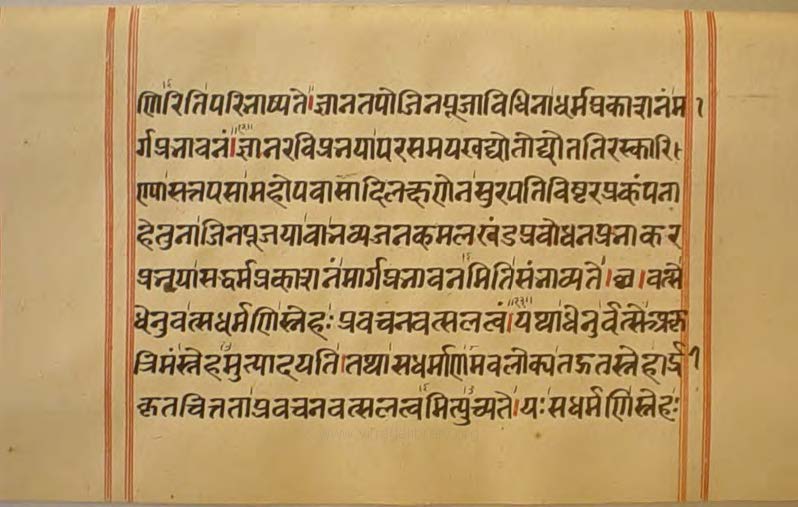 णिरिति परिभाष्यते। ज्ञानतपोजिनपूजाविधिना धर्मप्रकाशनं मा
र्गप्रभावनं॥१२॥ ज्ञानरविप्रभया परसमयखद्योतोद्योततिरस्कारि
ण्या सत्तपसा महोपवासादिलक्षणेन सुरपतिविष्टरप्रकंपना
हेतुना जिनपूजया वा भव्यजनकमलखंडप्रबोधनप्रभाकर
प्रभया सद्धर्मप्रकाशनं मार्गप्रभावनमिति संभाव्यते। वत्से
धेनुवत्सधर्मणि स्नेहः प्रवचनवत्सलत्वं॥१३॥ यथा धेनुर्वत्से अकृ
त्रिमं स्नेहमुत्पादयति। तथा सधर्माणमवलोक्य तद्गतस्नेहार्द्री
कृतचित्तता प्रवचनवत्सलत्वमित्युच्यते। यः सधर्मणि स्नेहः